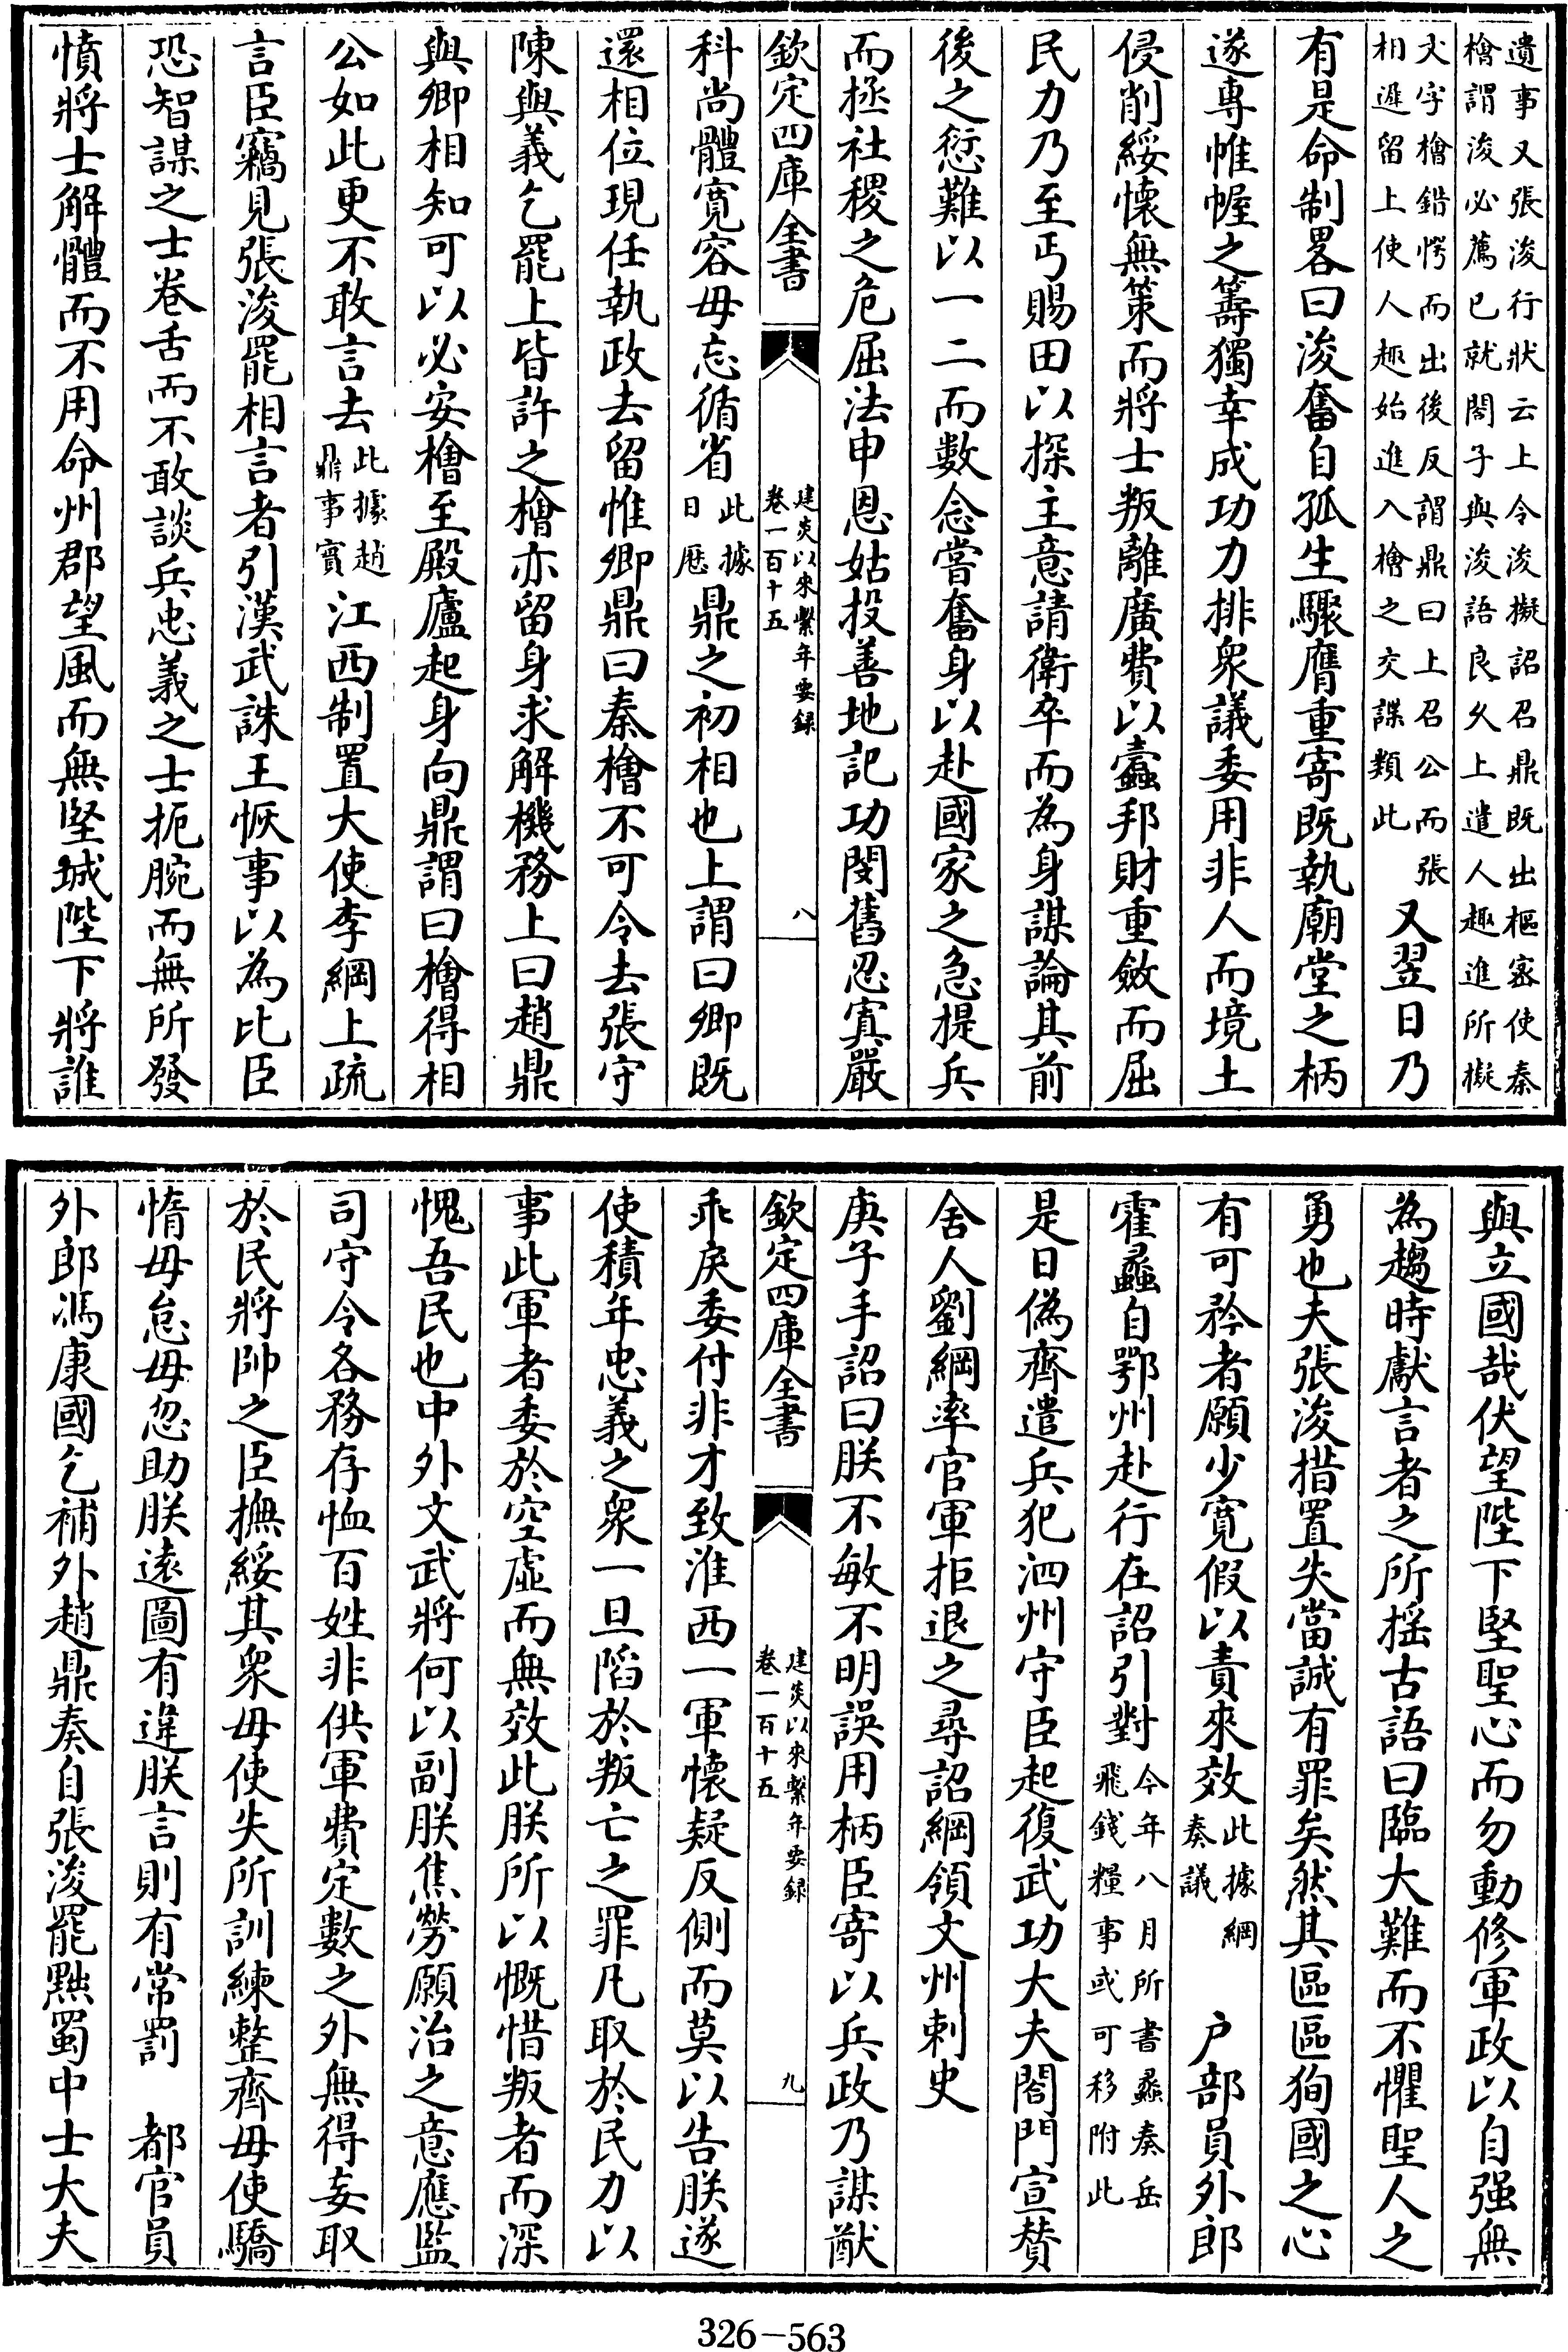 遺事又張浚行狀云上令浚擬詔召鼎既出樞宻使秦
檜謂浚必薦已就閤子與浚語良乆上遣人趣進所擬
文字檜錯愕而出後反謂鼎曰上召公而張
相遲留上使人趣始進入檜之交諜類此
又翌日乃
有是命制畧曰浚奮自孤生驟膺重寄既執廟堂之柄
遂專帷幄之籌獨幸成功力排衆議委用非人而境土
侵削綏懷無策而將士叛離廣費以蠧邦財重斂而屈
民力乃至丐賜田以探主意請衛卒而為身謀論其前
後之愆難以一二而數念嘗奮身以赴國家之急提兵
而拯社稷之危屈法申恩姑投善地記功閔舊忍寘嚴
欽定四庫全書
建炎以來繫年要録
卷一百十五
八
科尚體寛容毋忘循省
此據
日厯
鼎之初相也上謂曰卿既
還相位現任執政去留惟卿鼎曰秦檜不可令去張守
陳與義乞罷上皆許之檜亦留身求解機務上曰趙鼎
與卿相知可以必安檜至殿廬起身向鼎謂曰檜得相
公如此更不敢言去
此據趙
鼎事實
江西制置大使李綱上疏
言臣竊見張浚罷相言者引漢武誅王恢事以為比臣
恐智謀之士卷舌而不敢談兵忠義之士扼腕而無所發
憤將士解體而不用命州郡望風而無堅城陛下將誰
與立國哉伏望陛下堅聖心而勿動修軍政以自强無
為趨時獻言者之所揺古語曰臨大難而不懼聖人之
勇也夫張浚措置失當誠有罪矣然其區區狥國之心
有可矜者願少寛假以責來效
此據綱
奏議
户部員外郎
霍蠡自鄂州赴行在詔引對
今年八月所書蠡奏岳
飛錢糧事或可移附此
是日偽齊遣兵犯泗州守臣起復武功大夫閤門宣賛
舍人劉綱率官軍拒退之尋詔綱領文州刺史
庚子手詔曰朕不敏不明誤用柄臣寄以兵政乃謀猷
欽定四庫全書
建炎以來繫年要録
卷一百十五
九
乖戾委付非才致淮西一軍懷疑反側而莫以告朕遂
使積年忠義之衆一旦䧟於叛亡之罪凡取於民力以
事此軍者委於空虛而無效此朕所以慨惜叛者而深
愧吾民也中外文武將何以副朕焦勞願治之意應監
司守令各務存恤百姓非供軍費定數之外無得妄取
於民將帥之臣撫綏其衆毋使失所訓練整齊毋使驕
惰毋怠毋忽助朕逺圖有違朕言則有常罰　都官員
外郎馮康國乞補外趙鼎奏自張浚罷黜蜀中士大夫
326-563